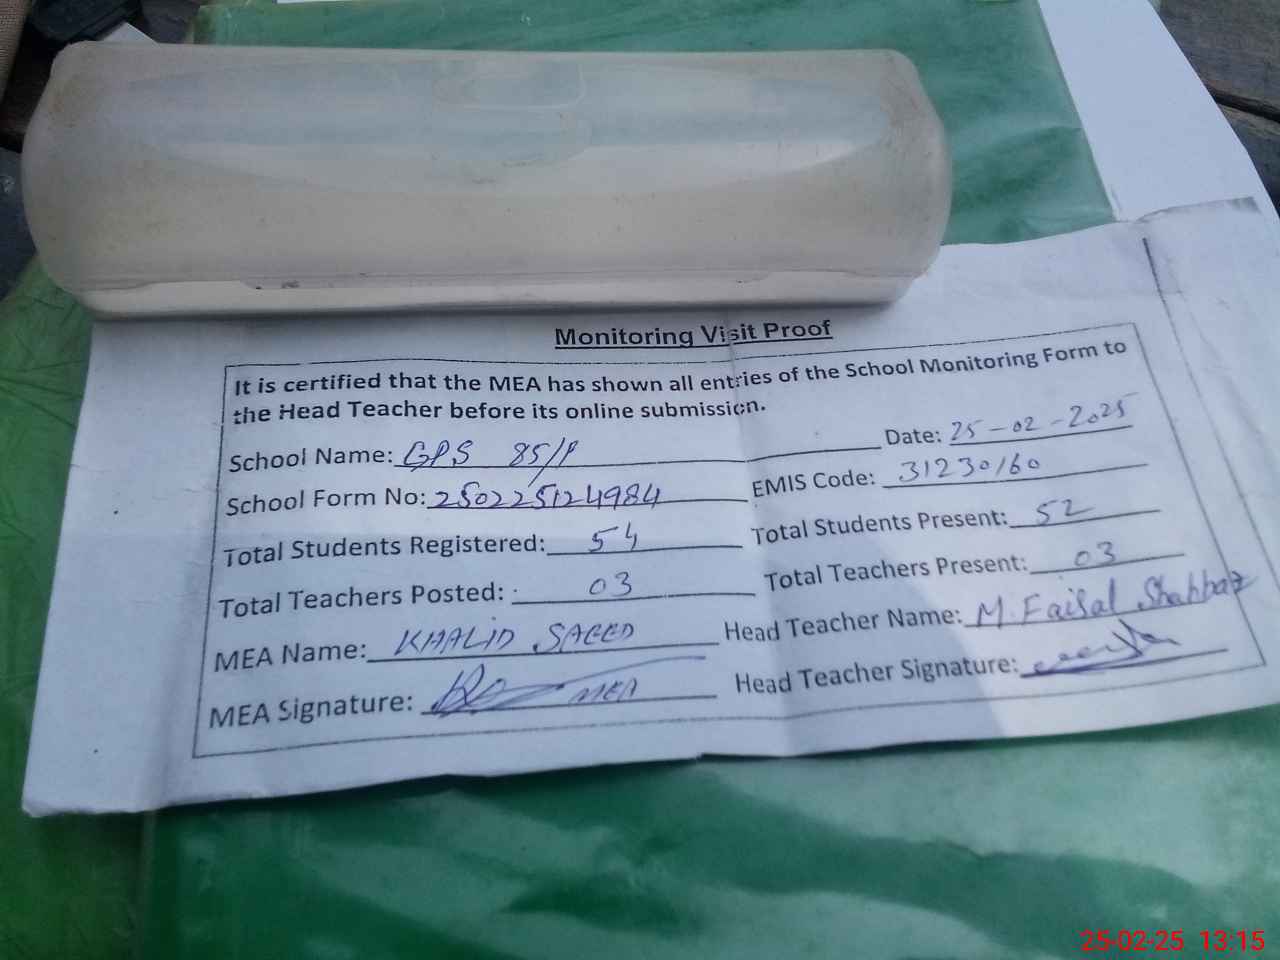 Monitoring Visit Proof
It is certified that the MEA has shown all entries of the School Monitoring Form to
the Head Teacher before its online submission.
School Name: GPS 85/P Date: 25-02-2025
School Form No: 250225124984 EMIS Code: 31230160
Total Students Registered: 54 Total Students Present: 52
Total Teachers Posted: 03 Total Teachers Present: 03
MEA Name: KHALID SAEED Head Teacher Name: M. Faisal Shahbaz
MEA Signature: MEA Head Teacher Signature:
25-02-25 13:15